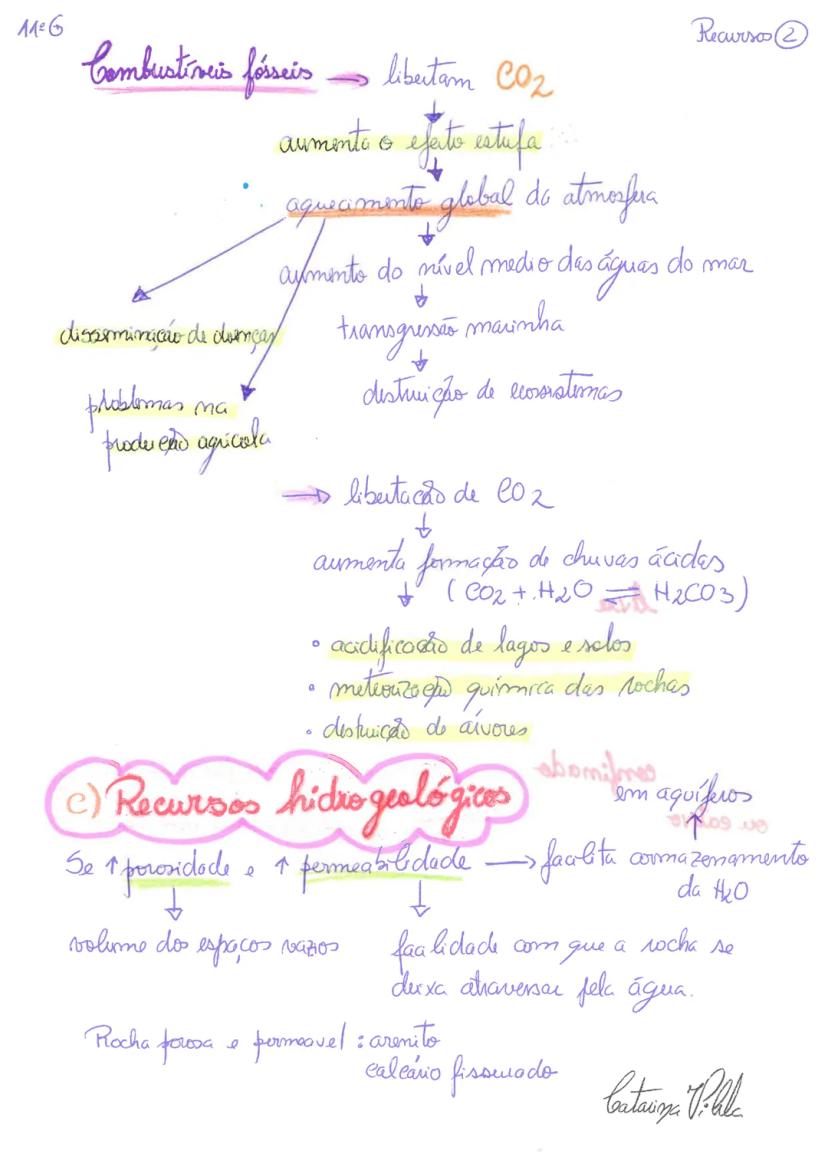 11ºG
Recursos 2
Combustíveis fósseis → libertam CO2
aumenta o efeito estufa
aquecimento global da atmosfera
aumento do nível medio das águas do mar
disseminação de doenças
transgressão marinha
problemas na
produção agrícola
destruição de ecossistemas
→ libertação de CO2
aumenta formação de chuvas ácidas
(CO2 + H2O ⇌ H2CO3)
• acidificação de lagos e solos
• meteorização química das rochas
• destruição de árvores
c) Recursos hidrogeológicos
em aquíferos
Se ↑ porosidade e ↑ permeabilidade → facilita armazenamento
da H2O
volume dos espaços vazios
facilidade com que a rocha se
deixa atravessar pela água.
Rocha porosa e permeavel : arenito
calcário fissurado
Catarina